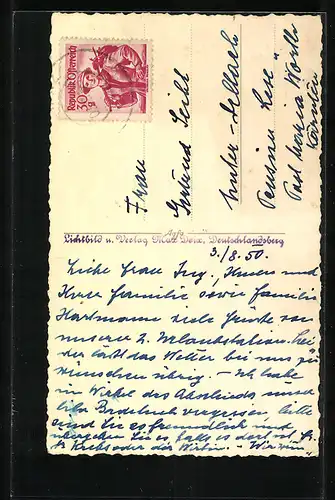 Republik Österreich
30 g
Frau
Gertrud
Unter-
Pension
Post Maria Wörth
Kärnten
Lichtbild u. Verlag Max Deix, Deutschlandsberg
3./8. 50.
Liebe Frau Ing., und
Ihrer Familie sowie Familie
Hartmann viele Grüße von
unserer 2. Urlaubstation. Lei-
der läßt das Wetter bis nun zu
wünschen übrig. – Ich habe
im Wirbel des Abschieds unser
Badetuch vergessen, bitte
sind Sie so freundlich und
es, falls es dort ist, Fr.
oder der Wirtin.